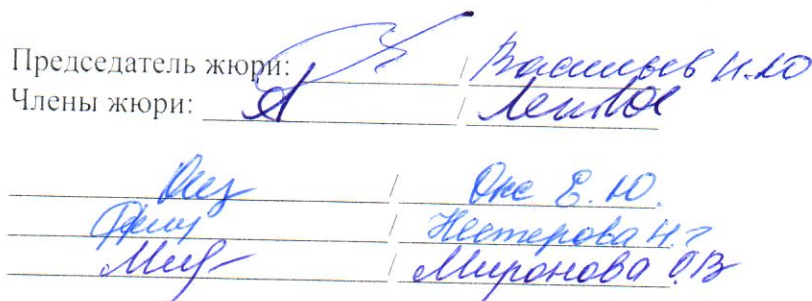 Председатель жюри: / Васильев Н.Ю
Члены жюри: /
/ Окс Е.Ю.
/ Нестерова Н.Г
/ Миронова О.В